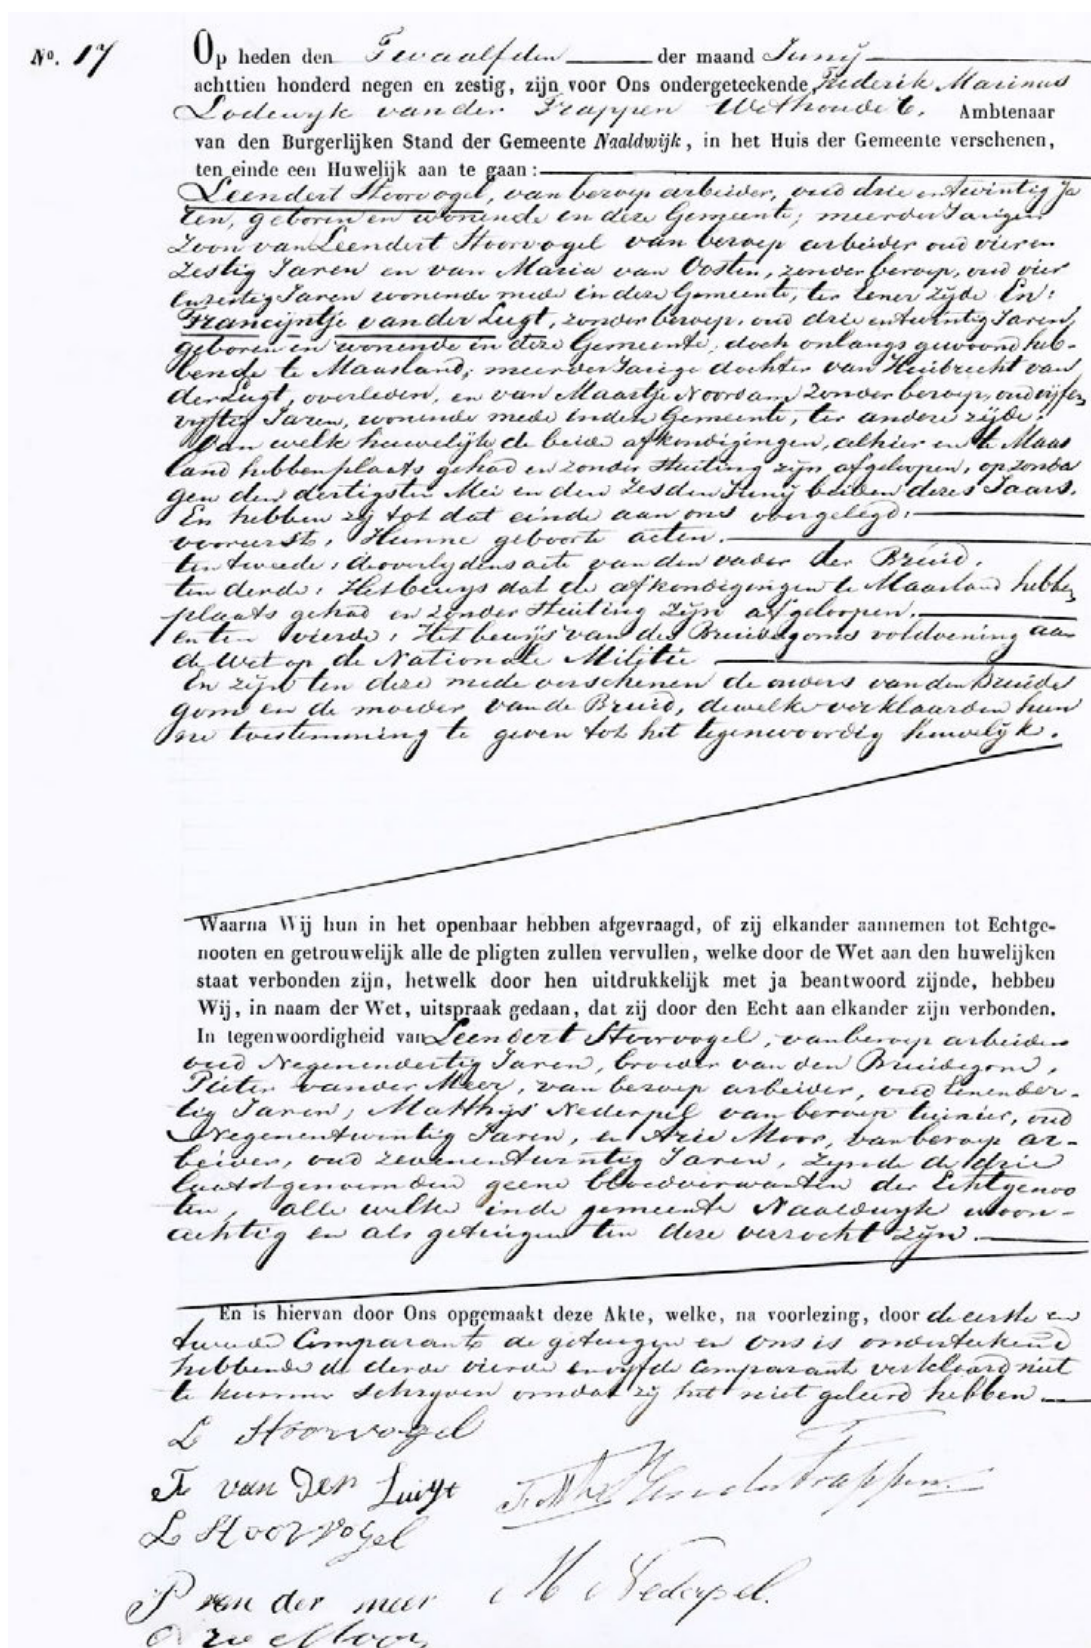 No. 17
Op heden den Twaalfden der maand Junij
achttien honderd negen en zestig, zijn voor Ons ondergeteekende Frederik Marinus
Lodewyk van der Trappen Wethouder. Ambtenaar
van den Burgerlijken Stand der Gemeente Naaldwijk, in het Huis der Gemeente verschenen,
ten einde een Huwelijk aan te gaan:
Leendert Stoorvogel, van beroep arbeider, oud drie entwintig Ja
ren, geboren en wonende in deze Gemeente; meerderJarigen
Zoon van Leendert Stoorvogel van beroep arbeider oud vier en
Zestig Jaren en van Maria van Oosten, zonder beroep, oud vier
enzestig Jaren wonende mede in deze Gemeente, ter Eener zijde En:
Francijntje van der Lugt, zonder beroep, oud drie entwintig Jaren,
geboren en wonende in deze Gemeente, doch onlangs gewoond heb-
bende te Maasland; meerderJarige dochter van Huibrecht van
der Lugt, overleden, en van Maartje Noordam Zonder beroep, oud vijfen
vyftig Jaren, wonende mede in deze Gemeente, ter andere zijde.
Van welk huwelijk de beide afkondigingen, alhier en te Maas
land hebben plaats gehad en zonder stuiting zijn afgeloopen, op zonda
gen den dertigsten Mei en den Zesden Junij beiden dezes Jaars.
En hebben zij tot dat einde aan ons voorgelegd:
vooreerst, Hunne geboorte acten.
ten tweede, de overlydens acte van den vader der Bruid.
ten derde, Het bewys dat de afkondigingen te Maasland hebben
plaats gehad en zonder Stuiting zijn afgeloopen.
en ten vierde, Het bewijs van des Bruidegoms voldoening aan
de Wet op de Nationale Militie
En zijn ten deze mede verschenen de ouders van den Bruide
gom en de moeder van de Bruid, dewelke verklaarden hun
ne toestemming te geven tot het tegenwoordig huwelyk.
Waarna Wij hun in het openbaar hebben afgevraagd, of zij elkander aannemen tot Echtge-
nooten en getrouwelijk alle de pligten zullen vervullen, welke door de Wet aan den huwelijken
staat verbonden zijn, hetwelk door hen uitdrukkelijk met ja beantwoord zijnde, hebben
Wij, in naam der Wet, uitspraak gedaan, dat zij door den Echt aan elkander zijn verbonden.
In tegenwoordigheid van Leendert Stoorvogel, van beroep arbeider
oud Negenendertig Jaren, broeder van den Bruidegom,
Pieter van der Meer, van beroep arbeider, oud Eenender-
tig Jaren, Matthijs Nederpel van beroep tuinier, oud
Negenentwintig Jaren, en Arie Moor, van beroep ar-
beider, oud zevenentwintig Jaren, zynde de drie
laatstgenoemden geene bloedverwanten der Echtgenoo
ten, alle welke inde gemeente Naaldwyk woon-
achtig en als getuigen ten deze verzocht zijn.
En is hiervan door Ons opgemaakt deze Akte, welke, na voorlezing, door de eerste en
tweede Comparante de getuigen en ons is onderteekend
hebbende de derde vierde en vyfde Comparant verklaard niet
te kunnen schryven omdat zij het niet geleerd hebben
L Stoorvogel
F van Der Lugt
F. M. L. van der Trappen
L Stoorvogel
P van der meer
M Nederpel.
Arie Moor